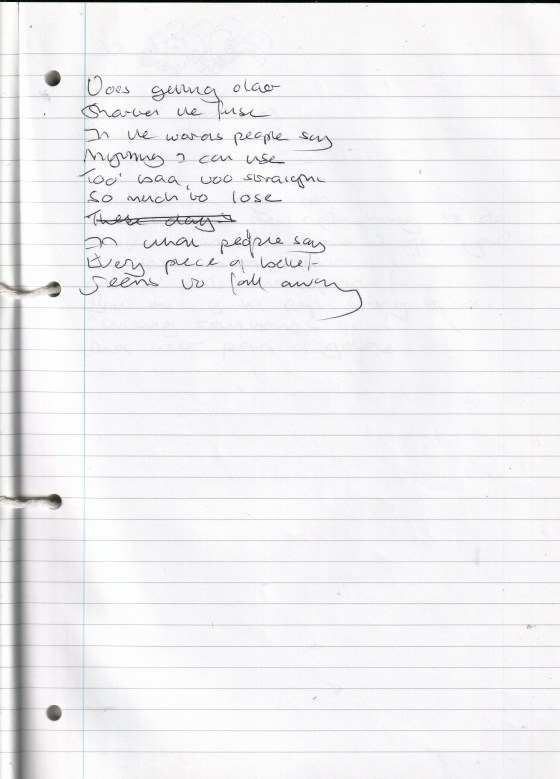 Does getting older
Shorten the fuse
In the words people say
Anything I can use
Too bad, too straight
So much to lose
These days
In what people say
Every piece of belief
Seems to fall away